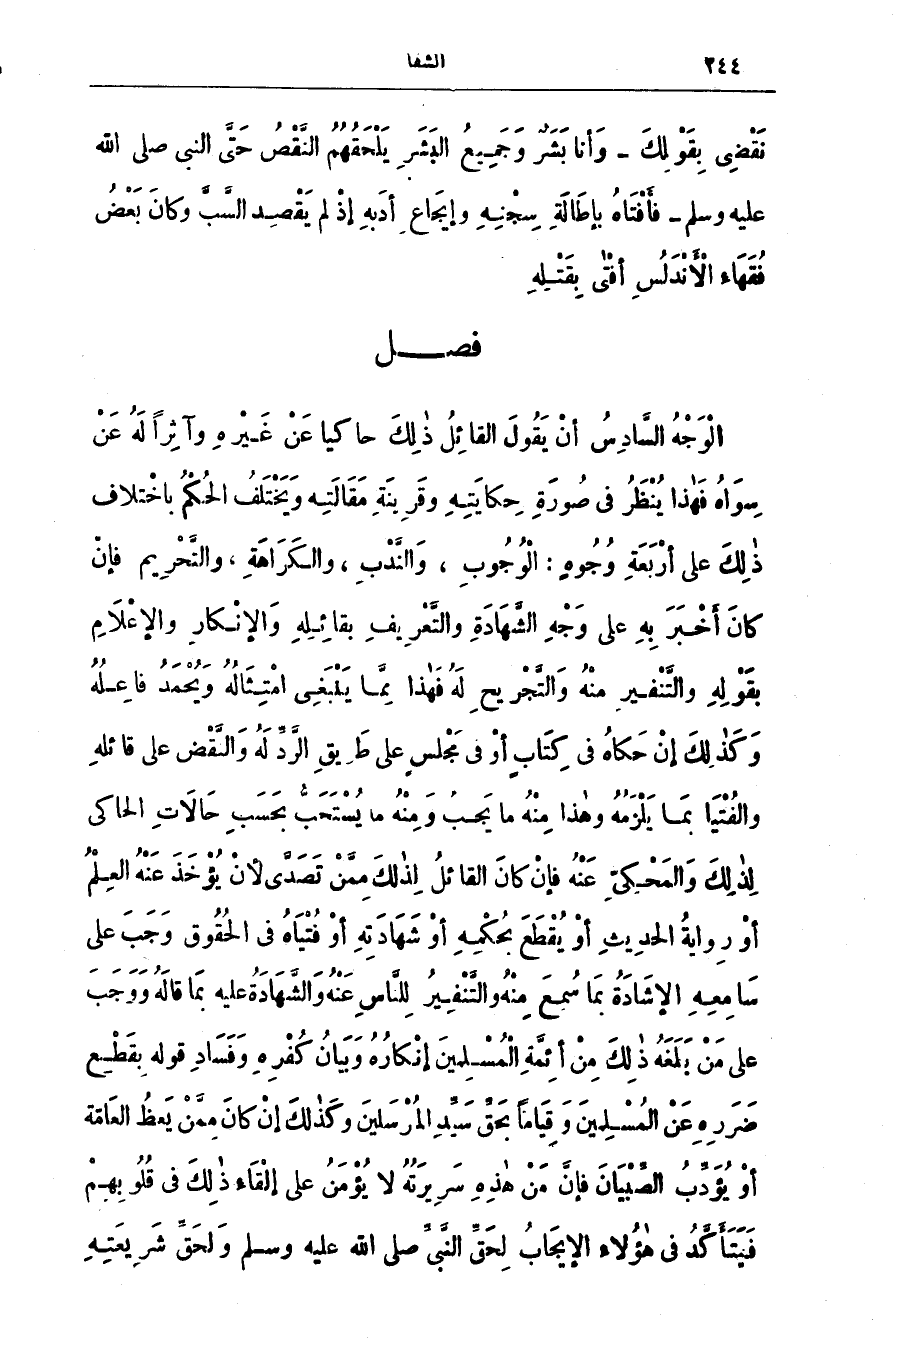 ٢٤٤ الشفا
نَقْصِى بِقَوْلِكَ ـ وَأنا بَشَرٌ وَجَمِيعُ البَشَرِ يَلْحَقُهُمُ النَّقْصُ حَتَّى النبى صلى الله
عليه وسلم ـ فَأَفْتَاهُ بإطَالَةِ سِجْنِهِ وإيجَاعِ أدَبِهِ إذْ لم يَقْصِد السَّبَّ وكانَ بَعْضُ
فُقَهَاء الْأَنْدَلُسِ أفْتَى بِقَتْلِهِ
فصل
الْوَجْهُ السَّادِسُ أنْ يَقُولَ القائِلُ ذٰلِكَ حاكيا عَنْ غَيْرِهِ وآثِراً لَهُ عَنْ
سِوَاهُ فَهٰذا يُنْظَرُ فى صُورَةِ حِكايَتِهِ وقَرِينَةِ مَقَالَتِهِ وَيَخْتَلفُ الحُكْمُ باخْتلاف
ذٰلِكَ على أرْبَعَةِ وُجُوهٍ : الْوُجُوبِ ، وَالنَّدْبِ ، والكَرَاهَةِ ، والتَّحْرِيم فإنْ
كانَ أَخْبَرَ بِهِ على وَجْهِ الشَّهَادَةِ والتَّعْرِيفِ بقائِلِهِ وَالإنْكارِ والإعْلَامِ
بِقَوْلِهِ والتَّنْفيرِ منْهُ وَالتَّجْرِيحِ لَهُ فَهٰذا مِمَّا يَنْبَغِى امْتِثَالُهُ وَيُحْمَدُ فاعِلُهُ
وَكَذٰلِكَ إنْ حَكاهُ فى كِتَابٍ أوْ فى مَجْلسٍ على طَرِيقِ الرَّدِّ لَهُ وَالنَّقْض على قائلهِ
والفُتْيَا بمَا يَلْزَمُهُ وهٰذا مِنْهُ ما يَجبُ وَمِنْهُ ما يُسْتَحَبُّ بحَسَبِ حَالَاتِ الحاكى
لِذٰلِكَ وَالمَحْكِىِّ عَنْهُ فإنْ كانَ القائلُ لذٰلكَ ممَّنْ تَصَدَّى لأنْ يُؤْخَذَ عنْهُ العِلْمُ
أوْ روايةُ الحديثِ أوْ يُقْطَعَ بحُكْمِهِ أوْ شَهَادَتِهِ أوْ فُتْيَاهُ فى الحُقُوقِ وَجَبَ على
سَامِعِهِ الإشَادَةُ بمَا سُمِعَ مِنْهُ والتَّنْفِيرُ لِلنَّاسِ عَنْهُ والشَّهَادَةُ عليه بمَا قالَهُ وَوَجَبَ
على مَنْ بَلَغَهُ ذٰلِكَ مِنْ أئمَّةِ الْمُسْلِمينَ إنْكارُهُ وَبَيَانُ كُفْرِهِ وَفَسَادِ قوله بِقَطْعِ
ضَرَرِهِ عَنْ المُسْلِمِينَ وَقِيَاماً بَحَقِّ سَيِّدِ المُرْسَلينَ وكَذٰلكَ إنْ كانَ ممَّنْ يَعظُ العامَّة
أوْ يُؤَدِّبُ الصِّبْيَانَ فإنَّ مَنْ هٰذِهِ سَرِيرَتُهُ لا يُؤْمَنُ على إلْقَاء ذٰلِكَ فى قُلُوبِهِمْ
فَيَتَأَكَّدُ فى هٰؤُلاء الإيجَابُ لِحَقِّ النَّبِىِّ صلى الله عليه وسلم وَلحَقِّ شَرِيعَتِهِ